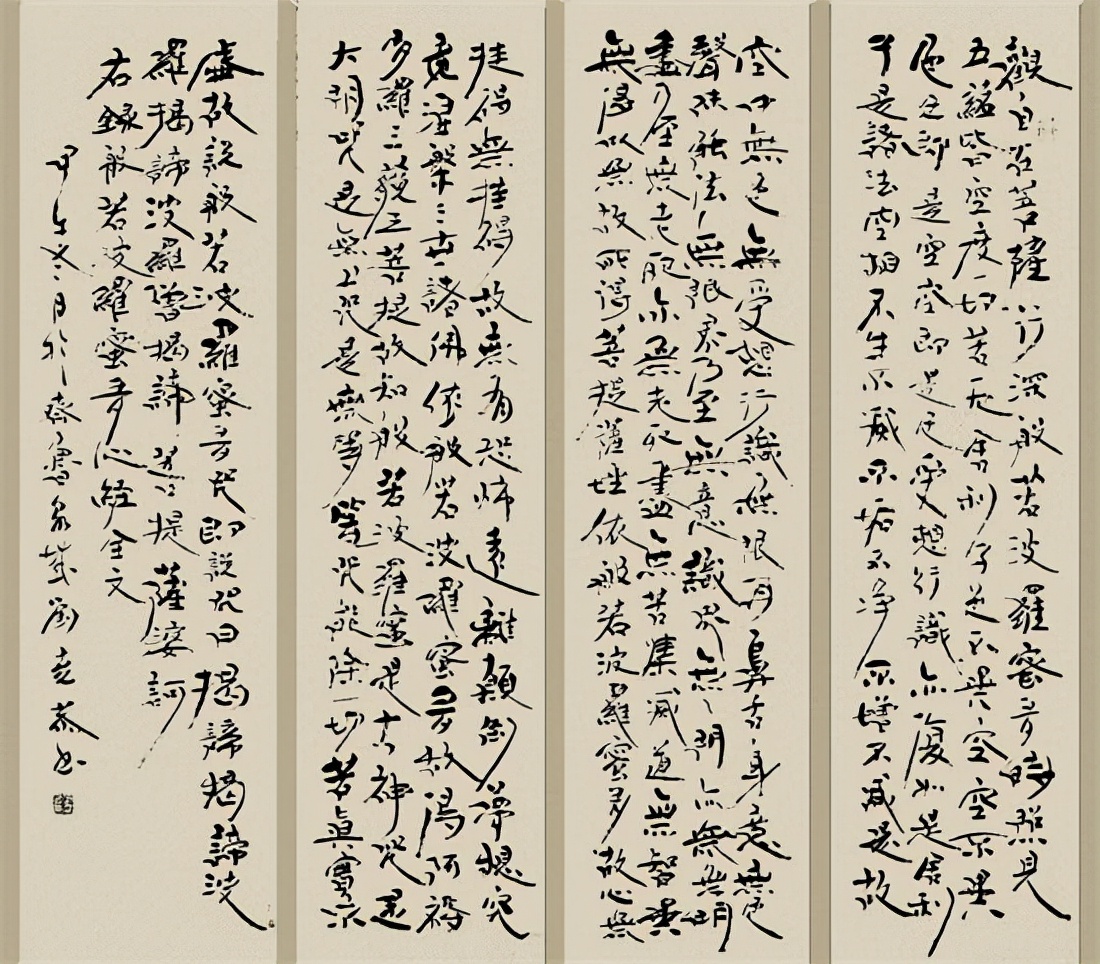 觀自在菩薩行深般若波羅蜜多時照見
五蘊皆空度一切苦厄舍利子色不異空空不異
色色即是空空即是色受想行識亦復如是舍利
子是諸法空相不生不滅不垢不淨不增不減是故
空中無色無受想行識無眼耳鼻舌身意無色
聲味觸法無眼界乃至無意識界無無明亦無無明
盡乃至無老死亦無老死盡無苦集滅道無智亦
無得以無故所得菩提薩埵依般若波羅蜜多故心無
挂碍無挂碍故無有恐怖遠離顛倒夢想究
竟涅槃三世諸佛依般若波羅蜜多故得阿耨
多羅三藐三菩提故知般若波羅蜜是大神咒是
大明咒是無上咒是無等等咒能除一切苦真實不
虛故說般若波羅蜜多咒即說咒曰揭諦揭諦波
羅揭諦波羅僧揭諦菩提薩婆訶
右錄般若波羅蜜多心經全文
甲午冬月於齊魯泉城劉克恭书